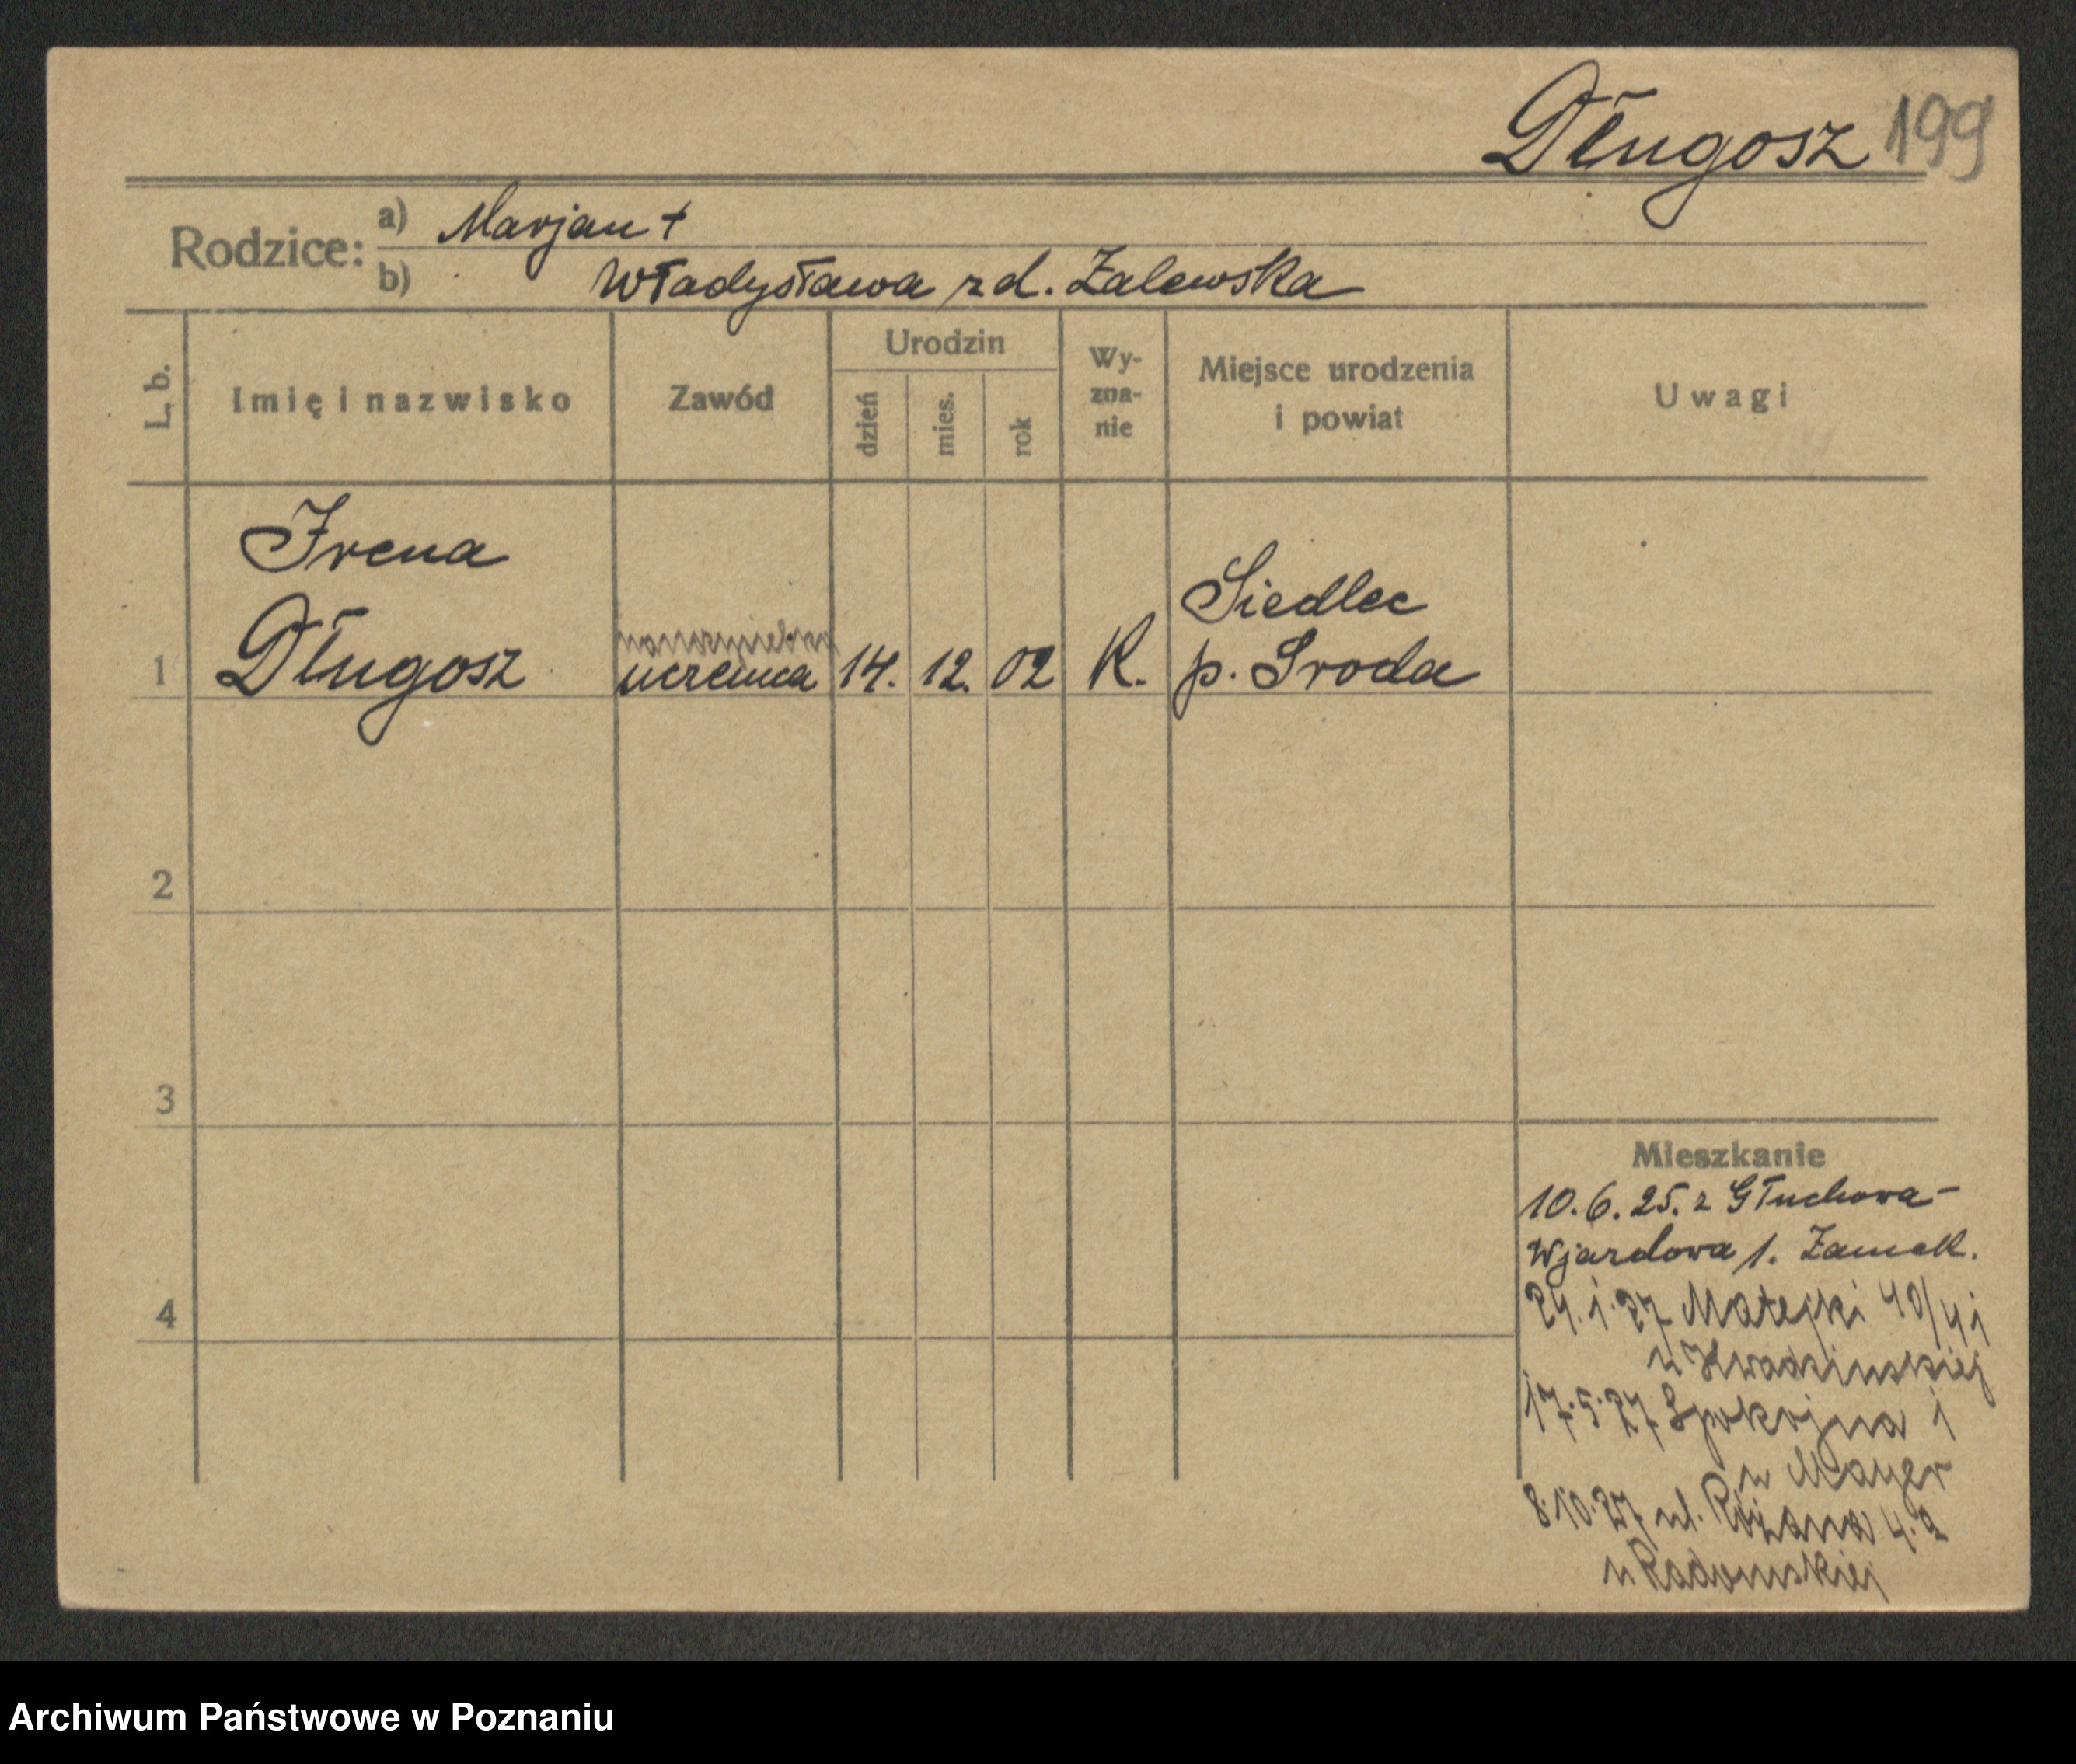 Długosz 199
Rodzice: a) Marjan +
b) Władysława zd. Zalewska
L. b.
Imię i nazwisko
Zawód
Urodzin
dzień
mies.
rok
Wy-
zna-
nie
Miejsce urodzenia
i powiat
Uwagi
Irena
Siedlec
1 Długosz uczenica 14. 12. 02 K. p. Sroda
2
3
4
Mieszkanie
10.6.25. z Głuchowa -
Wjazdowa 1. Zamek.
24.1.27 Matejki 40/41
u
17.5.27 Spokojna 1
u Mayer
8.10.27 ul. Różana 4.a
u Radomskiej
Archiwum Państwowe w Poznaniu